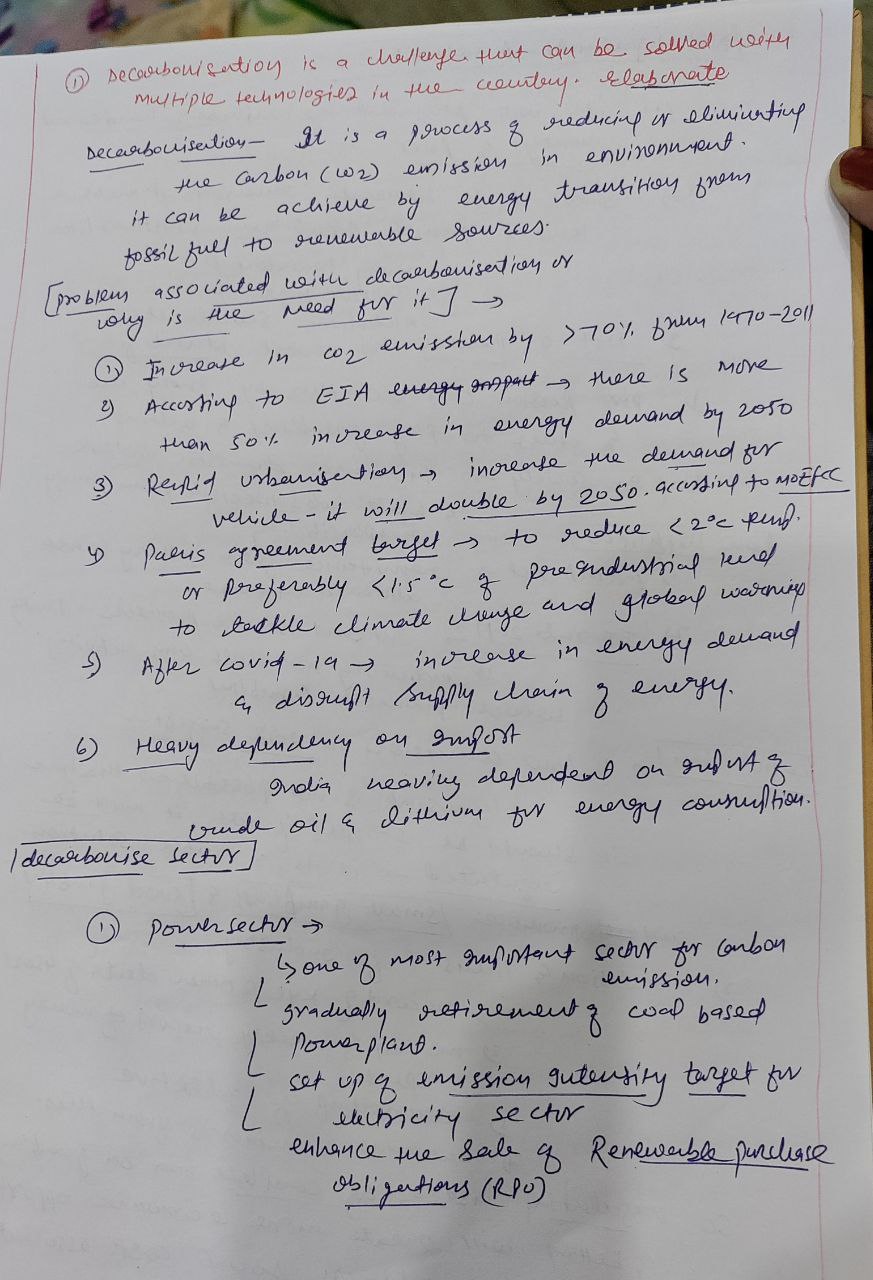 ① Decarbonisation is a challenge that can be solved with
multiple technologies in the country. Elaborate
Decarbonisation – It is a process of reducing or eliminating
the carbon (CO2) emission in environment.
it can be achieve by energy transition from
fossil full to renewable sources.
[problem associated with decarbonisation or
why is the need for it] →
① Increase in CO2 emission by >70% from 1970-2011
2) According to EIA → there is more
than 50% increase in energy demand by 2050
3) Rapid urbanisation → increase the demand for
vehicle – it will double by 2050. according to MoEFCC
4) Paris agreement target → to reduce <2°c temp.
or preferably <1.5°c of preindustrial level
to tackle climate change and global warming
5) After covid-19 → increase in energy demand
& disrupt supply chain of energy.
6) Heavy dependency on import
India heaving dependend on import of
crude oil & lithium for energy consumption.
[decarbonise sector]
① Power sector →
↳ one of most important sector for carbon
emission.
gradually retirement of coal based
Power plant.
set up of emission intensity target for
electricity sector
enhance the Sale of Renewable purchase
obligations (RPO)